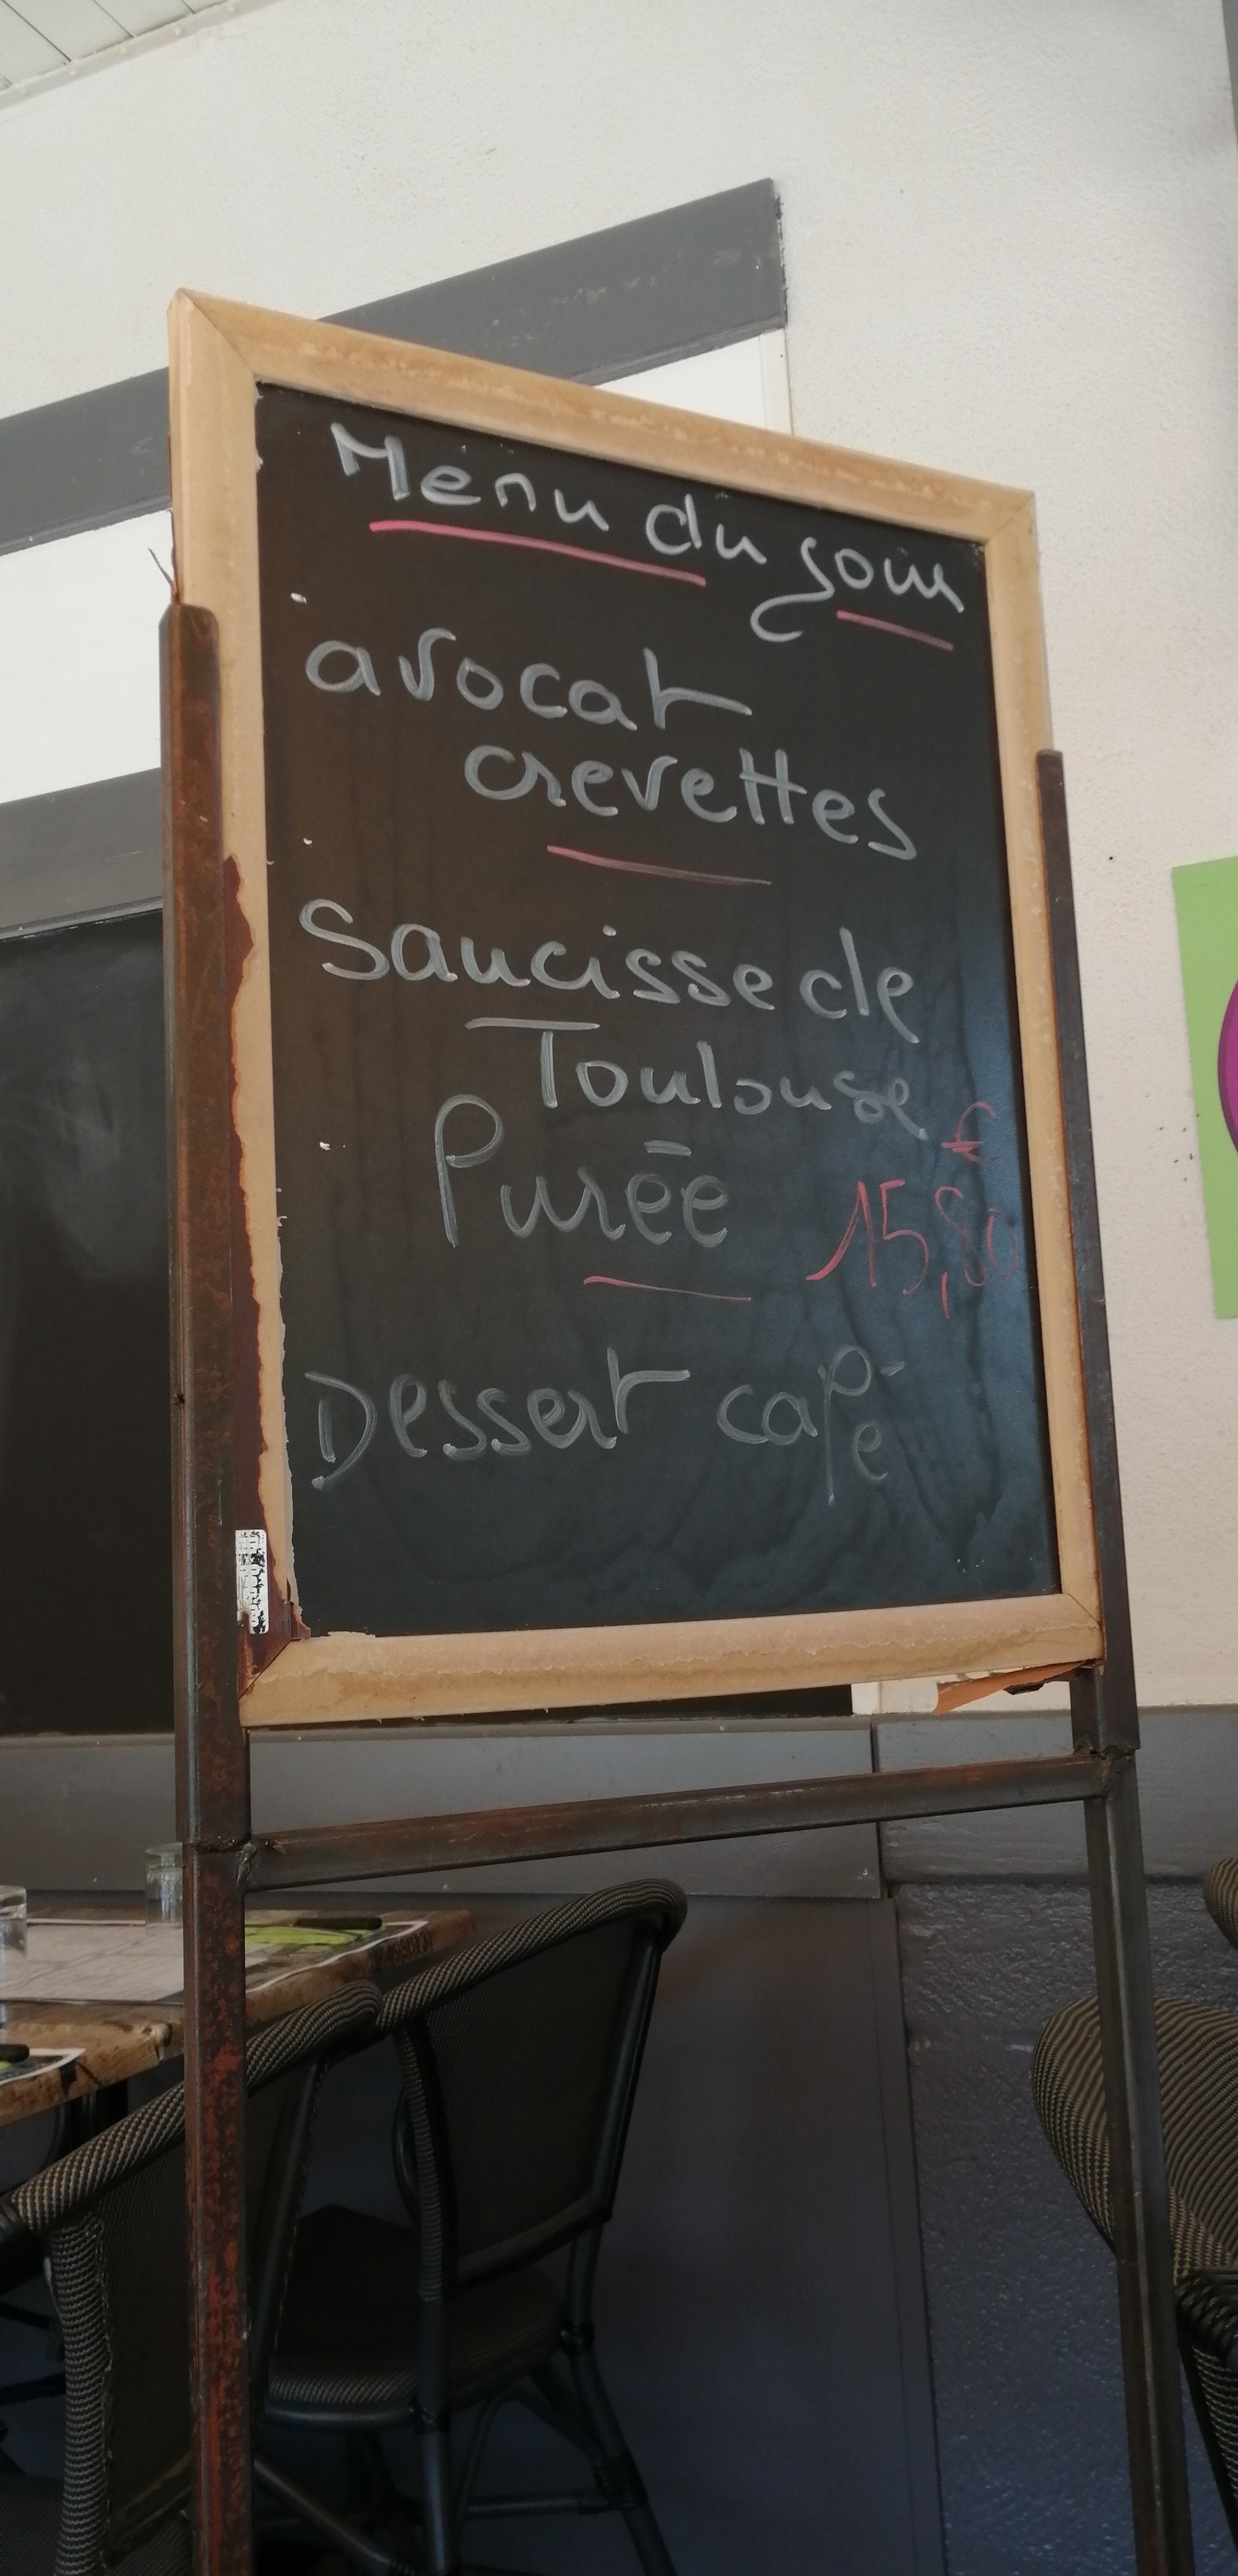 Menu du jour
avocat
crevettes
Saucisse de
Toulouse
Purée
€
15,80
Dessert café